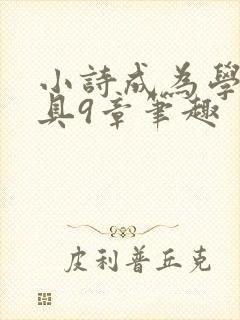 小詩成為學
具9章筆趣
皮利普丘克